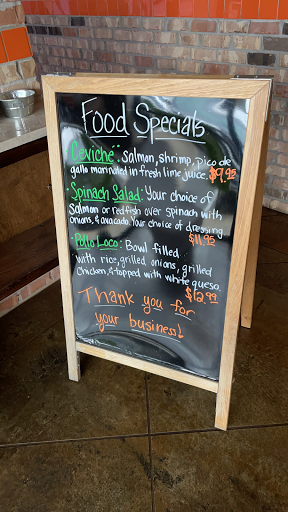 Food Specials
Ceviche: Salmon, shrimp, pico de
gallo marinated in fresh lime juice. $9.95
• Spinach Salad: Your choice of
Salmon or redfish over spinach with
onions, & avocado. Your choice of dressing.
$11.95
• Pollo Loco: Bowl filled
with rice, grilled onions, grilled
Chicken, & topped with white queso.
$12.99
Thank you for
your business!